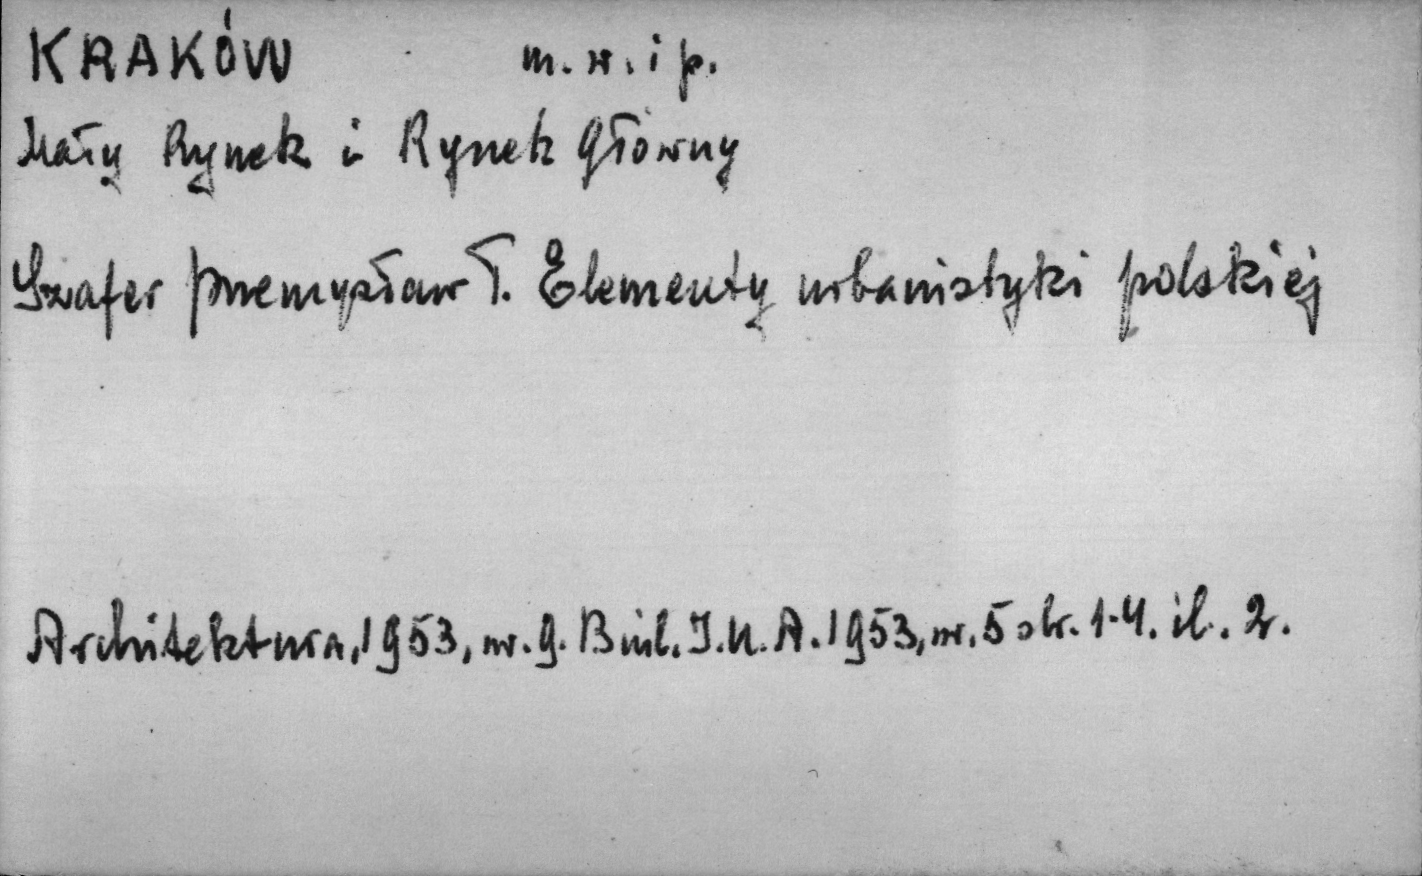 KRAKÓW m. w. i p.
Mały Rynek i Rynek Główny
Szafer Przemysław T. Elementy urbanistyki polskiej
Architektura, 1953, nr. 9. Biul. I. U. A. 1953, nr. 5 str. 1-4. il. 2.